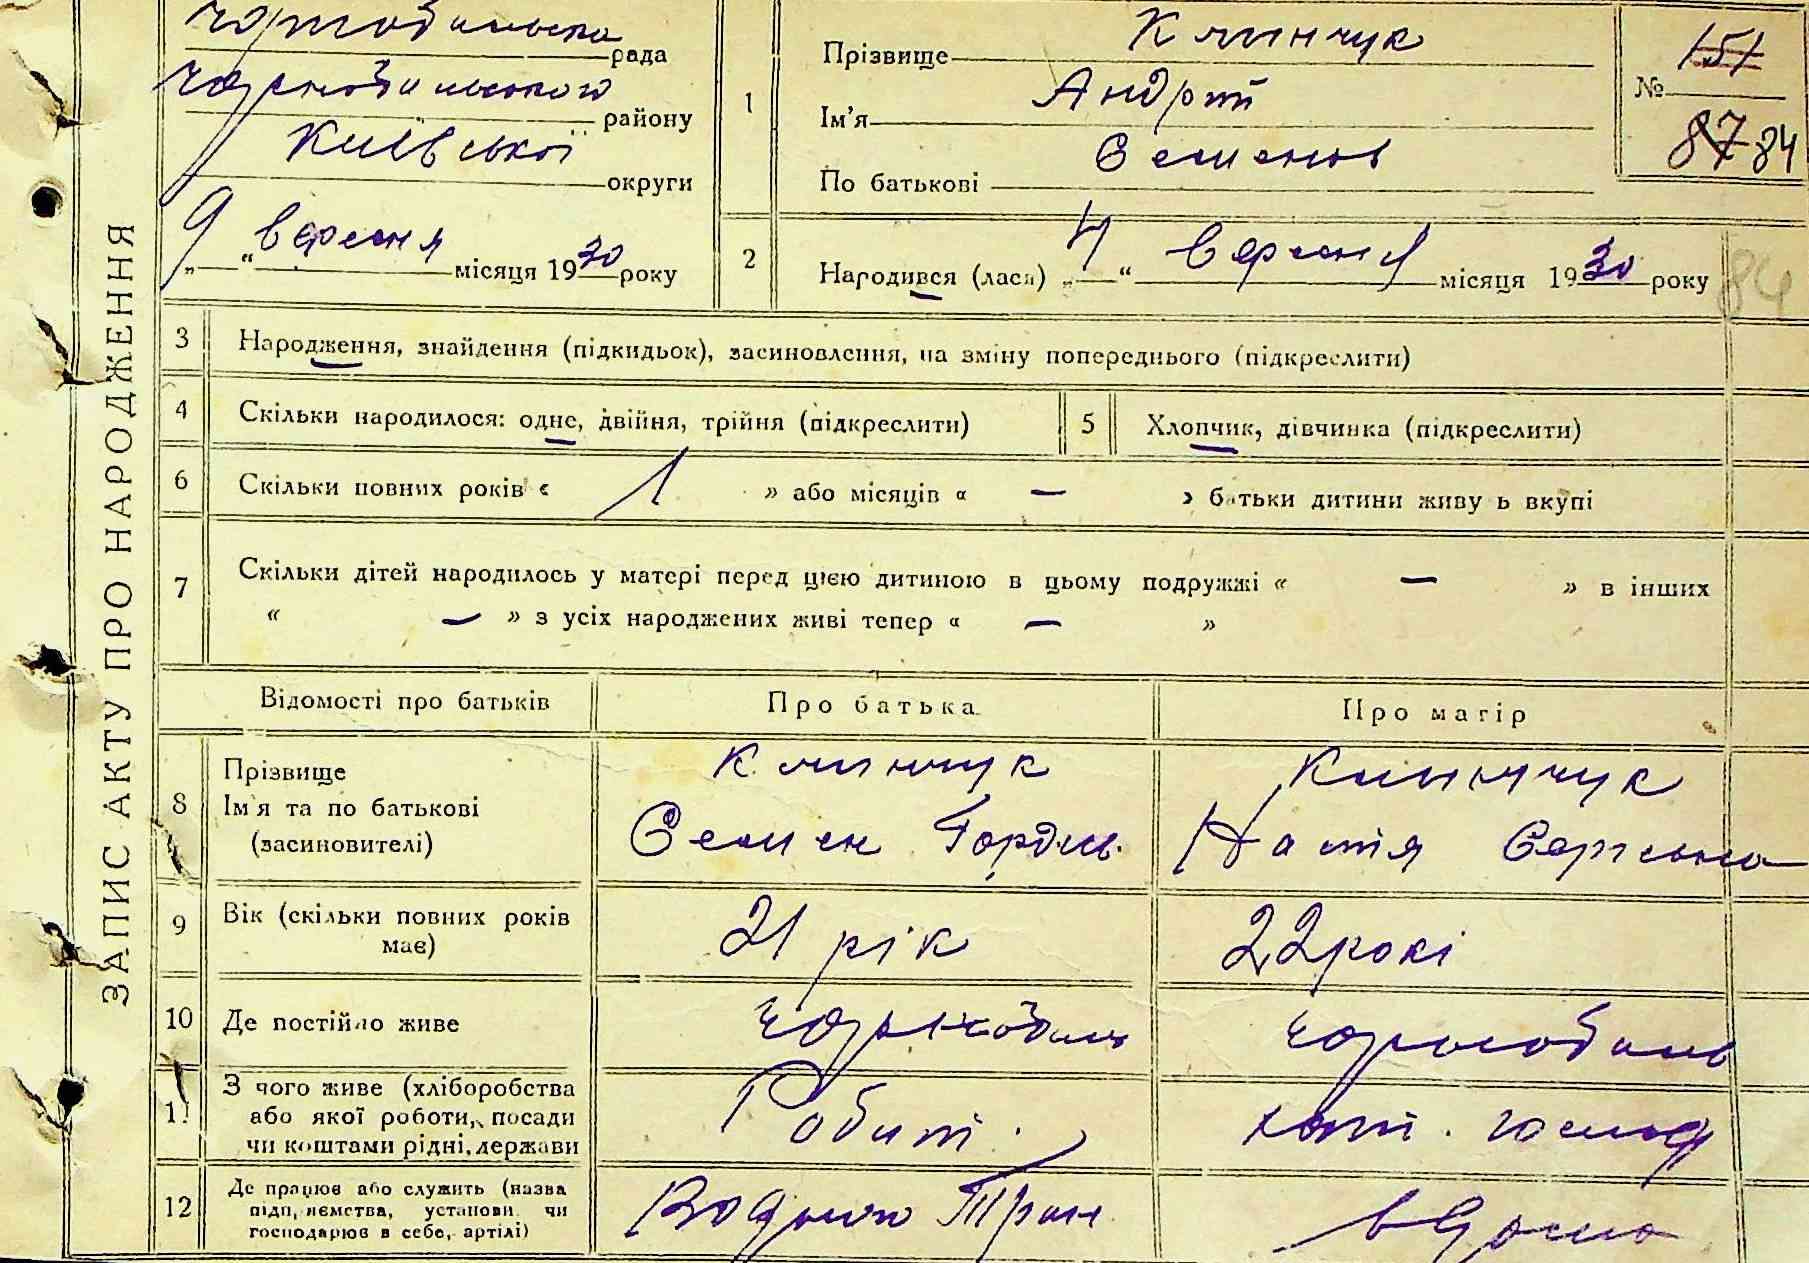 ЗАПИС АКТУ ПРО НАРОДЖЕННЯ
Чорнобильська рада
Чорнобильського району
Київської округи
„9“ вересня місяця 1930 року
1
Прізвище Клинчук
Ім'я Андрій
По батькові Семенов
№ 151
87 84
2
Народився (лася) „4“ вересня місяця 1930 року
84
3 Народження, знайдення (підкидьок), засиновлення, на зміну попереднього (підкреслити)
4 Скільки народилося: одне, двійня, трійня (підкреслити)
5 Хлопчик, дівчинка (підкреслити)
6 Скільки повних років « 1 » або місяців « — » батьки дитини живуть вкупі
7 Скільки дітей народилось у матері перед цією дитиною в цьому подружжі « — » в інших
« — » з усіх народжених живі тепер « — »
Відомості про батьків Про батька Про матір
8 Прізвище
Ім'я та по батькові
(засиновителі)
Клинчук
Семен Гордієв.
Клинчук
Настя Сергієвна
9 Вік (скільки повних років
має)
21 рік
22 рокі
10 Де постійно живе
Чорнобиль
Чорнобиль
11 З чого живе (хліборобства
або якої роботи, посади
чи коштами рідні, держави
Робит.
хат. господ
12 Де працює або служить (назва
підприємства, установи чи
господарює в себе, артілі)
Водного Тран
вдома